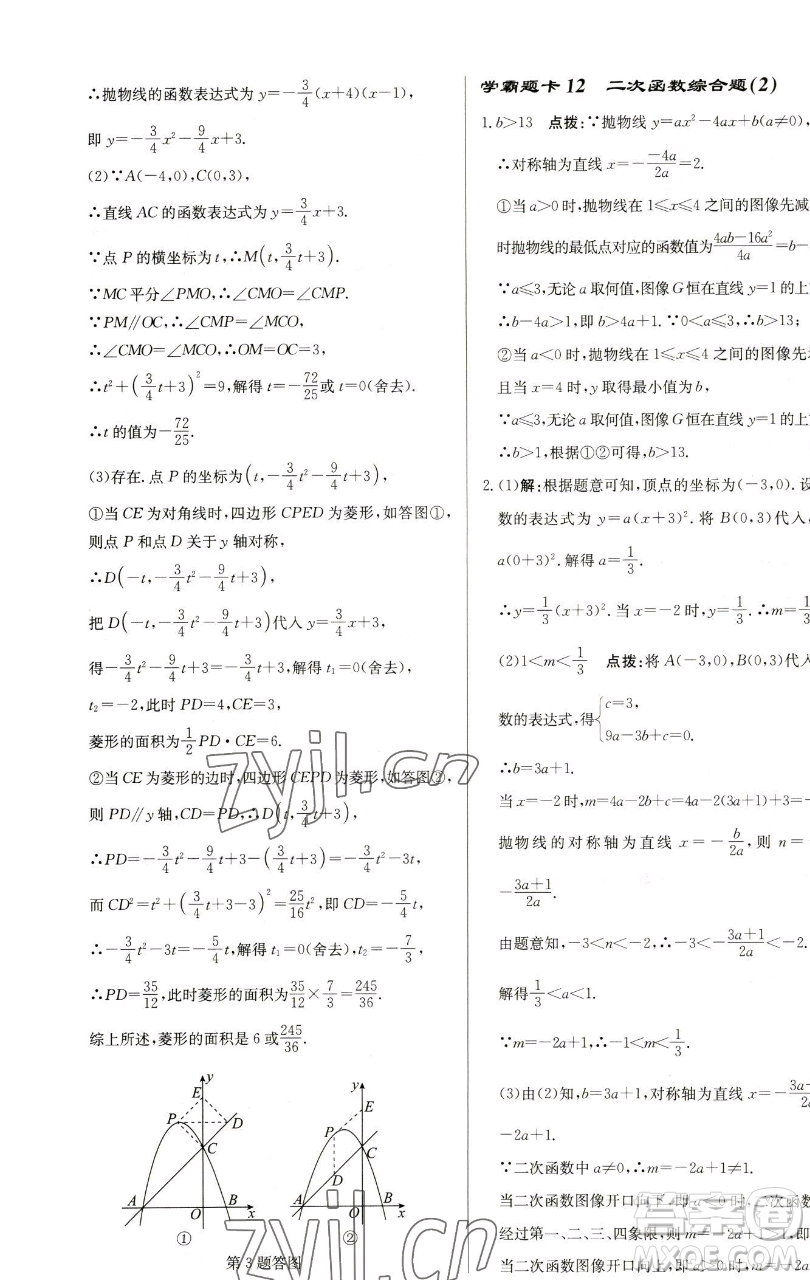 ∴抛物线的函数表达式为 y=-3/4(x+4)(x-1),
即 y=-3/4x²-9/4x+3.
(2)∵A(-4,0),C(0,3),
∴直线 AC 的函数表达式为 y=3/4x+3.
∵点 P 的横坐标为 t,∴M(t,3/4t+3).
∵MC 平分∠PMO,∴∠CMO=∠CMP.
∵PM∥OC,∴∠CMP=∠MCO,
∴∠CMO=∠MCO,∴OM=OC=3,
∴t²+(3/4t+3)²=9,解得 t=-72/25或 t=0(舍去).
∴t 的值为-72/25.
(3)存在.点 P 的坐标为(t,-3/4t²-9/4t+3),
①当 CE 为对角线时,四边形 CPED 为菱形,如答图①,
则点 P 和点 D 关于 y 轴对称,
∴D(-t,-3/4t²-9/4t+3),
把 D(-t,-3/4t²-9/4t+3)代入 y=3/4x+3,
得-3/4t²-9/4t+3=-3/4t+3,解得 t₁=0(舍去),
t₂=-2,此时 PD=4,CE=3,
菱形的面积为1/2PD·CE=6.
②当 CE 为菱形的边时,四边形 CEPD 为菱形,如答图②,
则 PD∥y 轴,CD=PD,∴D(t,3/4t+3),
∴PD=-3/4t²-9/4t+3-(3/4t+3)=-3/4t²-3t,
而 CD²=t²+(3/4t+3-3)²=25/16t²,即 CD=-5/4t,
∴-3/4t²-3t=-5/4t,解得 t₁=0(舍去),t₂=-7/3,
∴PD=35/12,此时菱形的面积为35/12×7/3=245/36.
综上所述,菱形的面积是 6 或245/36.
y
E
P
D
C
A
O
B
x
①
y
E
P
C
D
A
O
B
x
②
第 3 题答图
学霸题卡 12 二次函数综合题(2)
1.b>13 点拨:∵抛物线 y=ax²-4ax+b(a≠0),
∴对称轴为直线 x=-(-4a)/2a=2.
①当 a>0 时,抛物线在 1≤x≤4 之间的图像先减
时抛物线的最低点对应的函数值为(4ab-16a²)/4a=b-
∵a≤3,无论 a 取何值,图像 G 恒在直线 y=1 的上
∴b-4a>1,即 b>4a+1.∵0<a≤3,∴b>13;
②当 a<0 时,抛物线在 1≤x≤4 之间的图像先
且当 x=4 时,y 取得最小值为 b,
∵a≤3,无论 a 取何值,图像 G 恒在直线 y=1 的上
∴b>1,根据①②可得,b>13.
2.(1)解:根据题意可知,顶点的坐标为(-3,0).设
数的表达式为 y=a(x+3)².将 B(0,3)代入,
a(0+3)².解得 a=1/3.
∴y=1/3(x+3)².当 x=-2 时,y=1/3.∴m=
(2)1<m<1/3 点拨:将 A(-3,0),B(0,3)代入
数的表达式,得{c=3,
9a-3b+c=0.
∴b=3a+1.
当 x=-2 时,m=4a-2b+c=4a-2(3a+1)+3=-
抛物线的对称轴为直线 x=-b/2a,则 n=
-(3a+1)/2a.
由题意知,-3<n<-2,∴-3<-(3a+1)/2a<-2.
解得1/3<a<1.
∵m=-2a+1,∴-1<m<1/3.
(3)由(2)知,b=3a+1,对称轴为直线 x=-
-2a+1.
∵二次函数中 a≠0,∴m=-2a+1≠1.
当二次函数图像开口向下,即 a<0 时,二次函数
经过第一、二、三、四象限,则 m=-2a+1,即
当二次函数图像开口向上,即
zyjl.cn